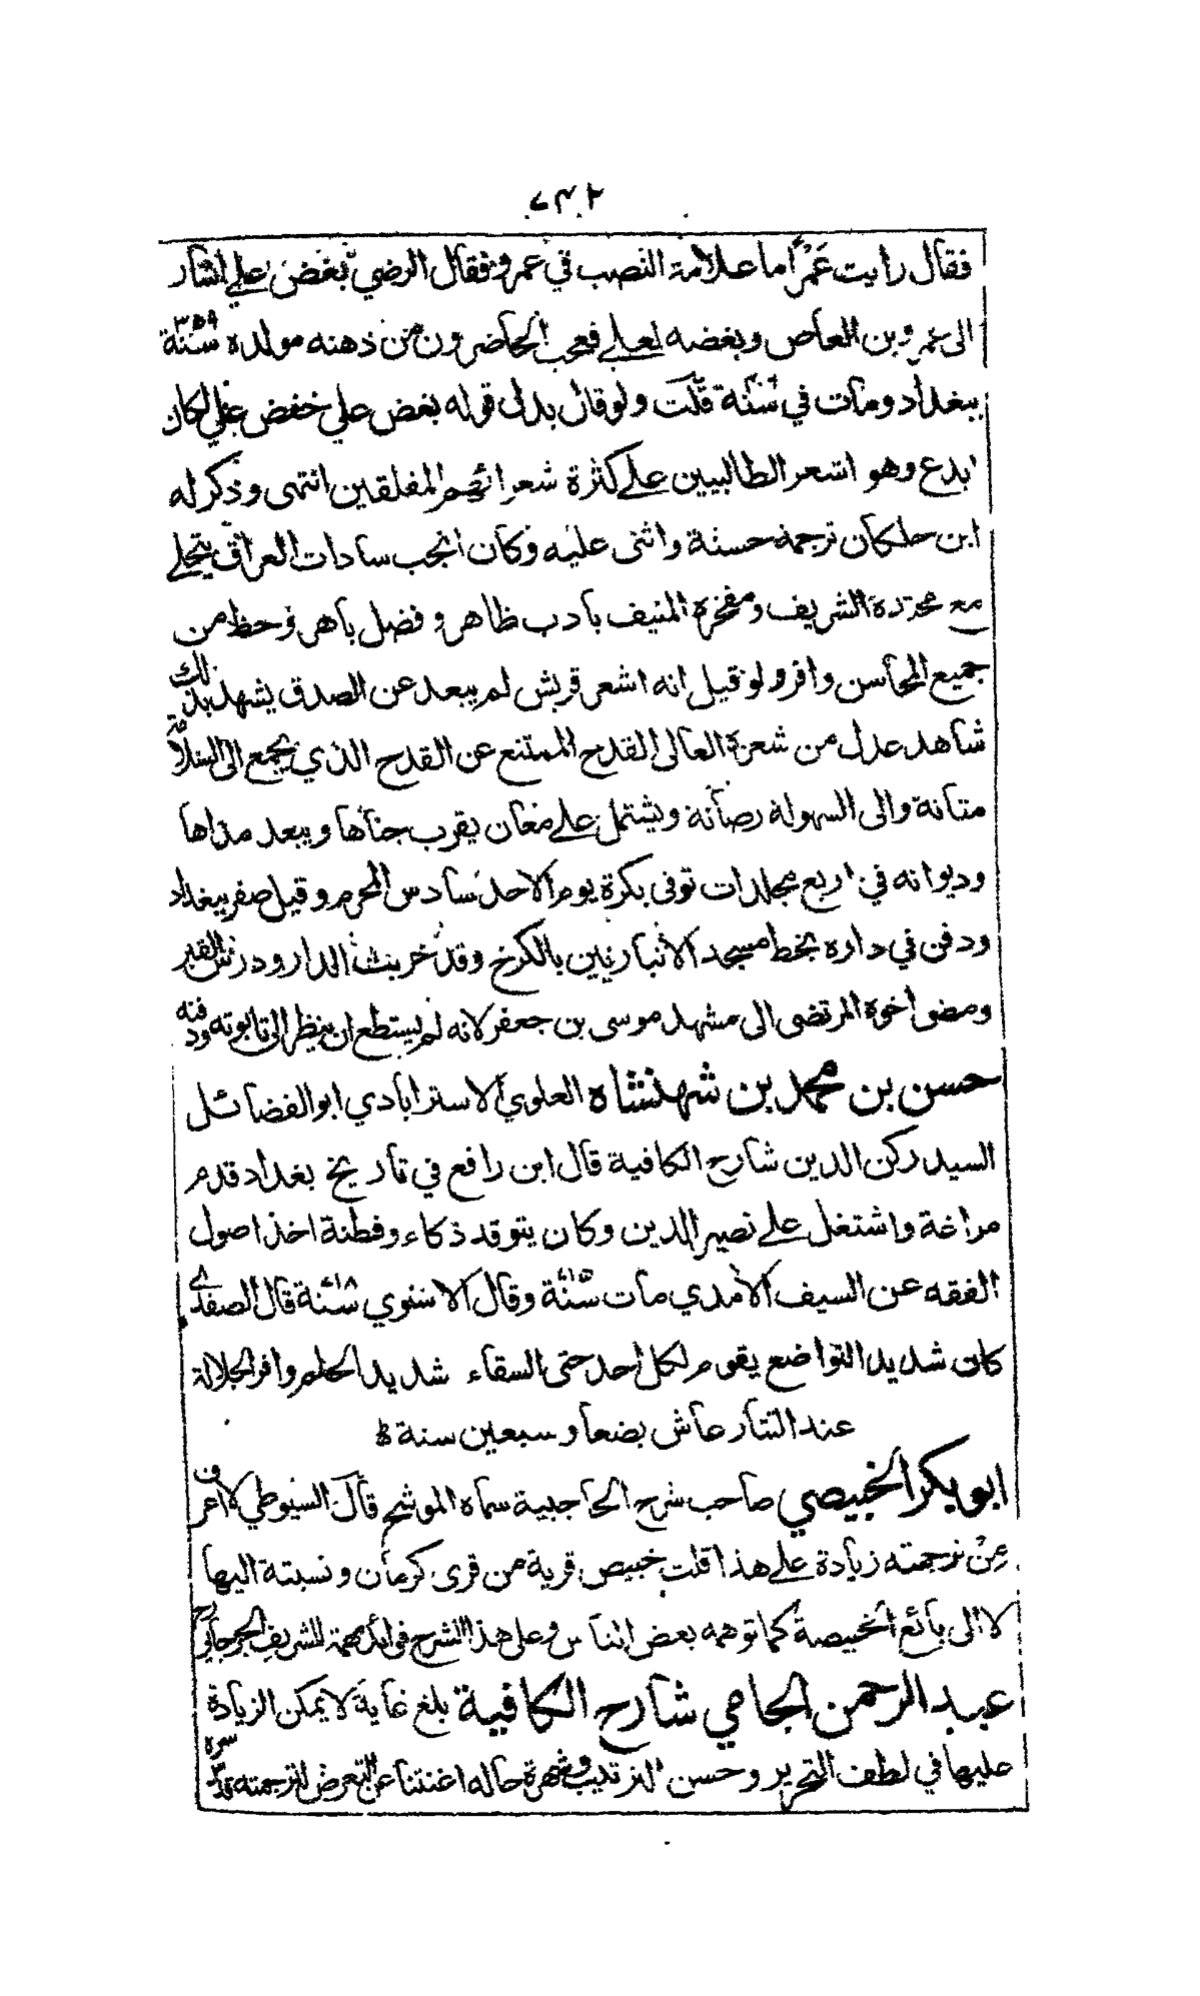 ٧٣٢
فقال رايت عَمْرًا ما علامة النصب في عمرو فقال الرضي بغض علي اشار
الى عمرو بن العاص وبغضه لعلي فعجب الحاضرون من ذهنه مولده سنة ٣٥٩
ببغداد ومات في سنة قلت ولو قال بدل قوله بغض علي خفض علي لكان
ابدع وهو اشعر الطالبيين على كثرة شعرائهم المفلقين انتهى وذكر له
ابن خلكان ترجمة حسنة واثنى عليه وكان انجب سادات العراق يتحلى
مع محتده الشريف ومفخره المنيف بادب ظاهر وفضل باهر وحظ من
جميع المحاسن وافر ولو قيل انه اشعر قريش لم يبعد عن الصدق يشهد بذلك
شاهد عدل من شعره العالي القدح الممتنع عن القدح الذي يجمع الى السلاسة
متانة والى السهولة رصانة ويشتمل على معان يقرب جناها ويبعد مداها
وديوانه في اربع مجلدات توفى بكرة يوم الاحد سادس المحرم وقيل صفر ببغداد
ودفن في داره بخط مسجد الانباريين بالكرخ وقد خربت الدار ودرس القبر
ومضى اخوه المرتضى الى مشهد موسى بن جعفر لانه لم يستطع ان ينظر الى تابوته ودفنه
حسن بن محمد بن شهنشاه العلوي الاسترابادي ابو الفضائل
السيد ركن الدين شارح الكافية قال ابن رافع في تاريخ بغداد قدم
مراغة واشتغل على نصير الدين وكان يتوقد ذكاء وفطنة اخذ اصول
الفقه عن السيف الآمدي مات سنة ٧١٥ وقال الاسنوي سنة ٧١٨ قال الصفدي
كان شديد التواضع يقوم لكل احد حتى السقاء شديد الحلم وافر الجلالة
عند التتار عاش بضعا وسبعين سنة
ابو بكر الخبيصي صاحب شرح الحاجبية سماه الموشح قال السيوطي لا اعرف
من ترجمته زيادة على هذا قلت خبيص قرية من قرى كرمان ونسبته اليها
لا الى بائع الخبيصة كما توهمه بعض الناس وعلى هذا الشرح فوائد مهمة للشريف الجرجاني رح
عبد الرحمن الجامي شارح الكافية بلغ غاية لا يمكن الزيادة
عليها في لطف التحرير وحسن الترتيب وشهرة حاله اغنتنا عن التعرض لترجمته قدس سره